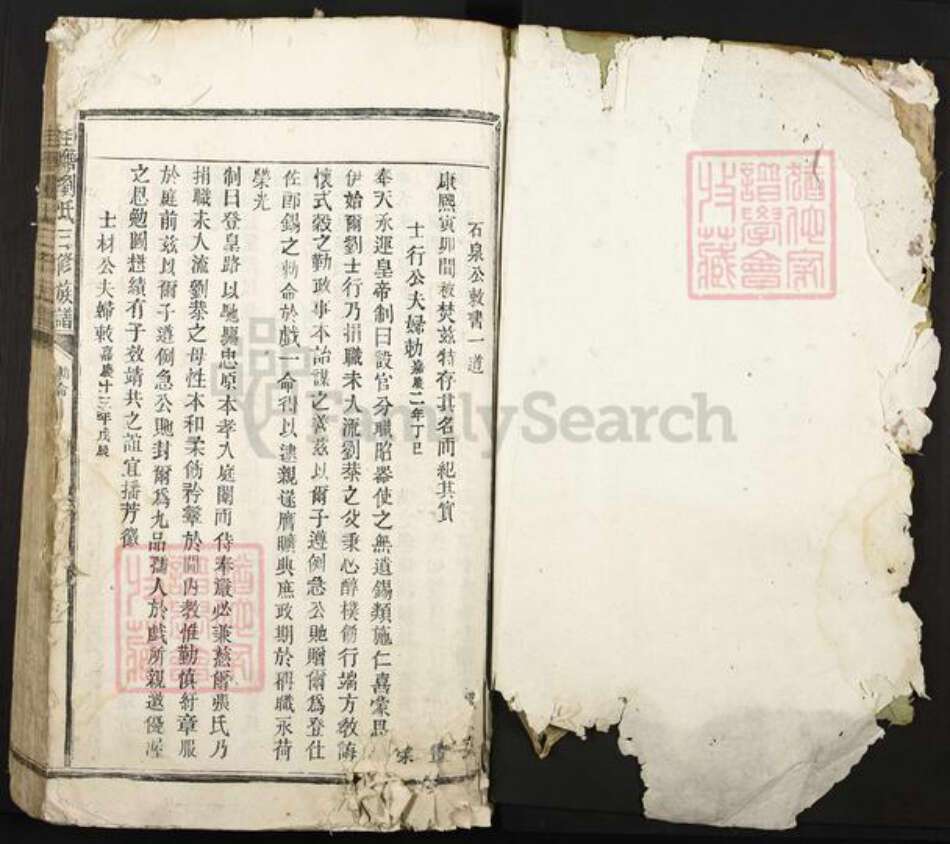 石泉公敕書一道
康熙寅卯間被焚兹特存其名而紀其實
士行公夫婦勅嘉慶二年丁巳
奉天承運皇帝制曰設官分職昭器使之無遺錫類施仁嘉蒙恩
伊始爾劉士行乃捐職未入流劉棻之父秉心醇樸飭行端方教誨
懷式穀之勤政事本詒謀之善茲以爾子遵例急公貤贈爾為登仕
佐郎錫之勅命於戲一命刋以逮親遂膺曠典庶政期於稱職永荷
榮光
制曰登皇路以馳驅忠原本孝入庭闈而侍奉嚴必兼慈爾張氏乃
捐職未入流劉棻之母性本和柔飭矜鞶於閫內教惟勤慎紆章服
於庭前兹以爾子遵例急公貤封爾為九品孺人於戲所親邀優渥
之恩勉圖懋績有子效靖共之誼宜播芳徽
士材公夫婦敕嘉慶十三年戊辰
劉氏三修族譜
猶他家譜學會收藏
猶他家譜學會收藏
FamilySearch